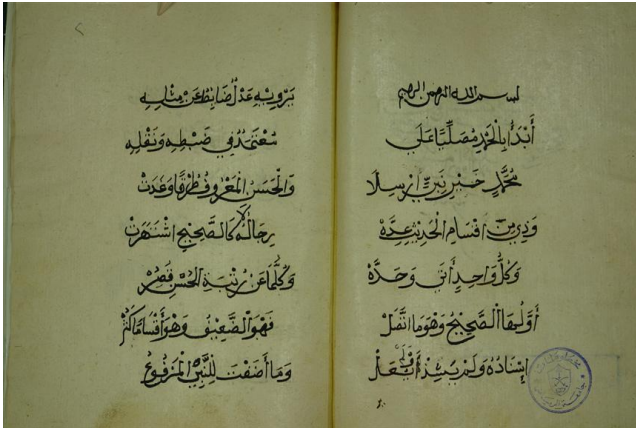 بسم الله الرحمن الرحيم
أَبْدَأُ بِالْحَمْدِ مُصَلِّيًا عَلَى
مُحَمَّدٍ خَيْرِ نَبِيٍّ أرْسِلَا
وَذِي مِنَ اقْسَامِ الْحَدِيثِ عِدَّهْ
وَكُلُّ وَاحِدٍ أَتَى وَحَدَّهْ
أَوَّلُهَا الصَّحِيحُ وَهْوَ مَا اتَّصَلْ
إِسْنَادُهُ وَلَمْ يَشُذَّ أَوْ يُعَلْ
يَرْوِيْهِ عَدْلٌ ضَابِطٌ عَنْ مِثْلِهِ
مُعْتَمَدٌ فِي ضَبْطِهِ وَنَقْلِهِ
وَالْحَسَنُ الْمَعْرُوفُ طُرْقًا وَغَدَتْ
رِجَالُهُ لَا كَالصَّحِيحِ اشْتَهَرَتْ
وَكُلُّمَا عَنْ رُتْبَةِ الْحُسْنِ قَصُرْ
فَهْوَ الضَّعِيفُ وَهْوَ أَقْسَامًا كَثُرْ
وَمَا أضفت لِلنَّبِيِّ الْمَرْفُوعُ